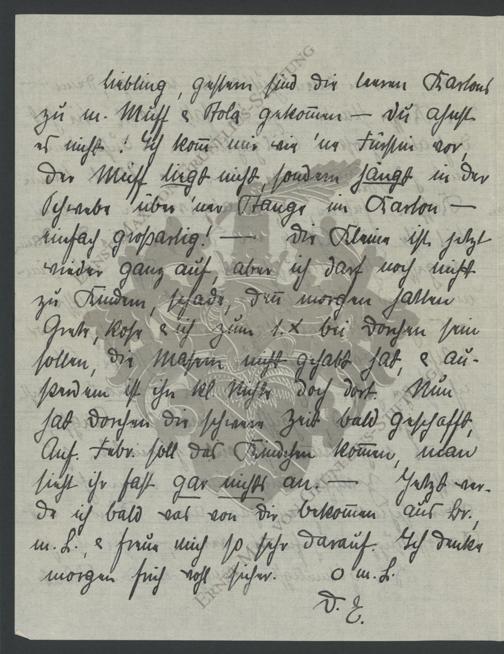 Liebling, gestern sind die leeren Kartons
zu m. Muff & Stola gekommen — du ahnst
es nicht! Ich komm mir wie 'ne Fürstin vor,
der Muff liegt nicht, sondern hängt in der
Schwebe über 'ner Stange im Karton —
einfach großartig! — Die Kleine ist jetzt
wieder ganz auf, aber ich darf noch nicht
zu Kindern, schade, denn morgen hatten
Grete, Rose & ich zum 1. X bei Dorchen sein
sollen, die Masern nicht gehabt hat, & au-
sserdem ist ihre kl. Nichte doch dort. Nun
hat Dorchen die schwere Zeit bald geschafft,
Anf. Febr. soll das Kindchen kommen, man
sieht ihr fast gar nichts an. — Jetzt wer-
de ich bald was von dir bekommen aus Br.,
m. L., & freue mich so sehr darauf. Ich denke
morgen früh wohl sicher. O m. L.
D. E.
ERNST MAX VON GRUNELIUS-STIFTUNG